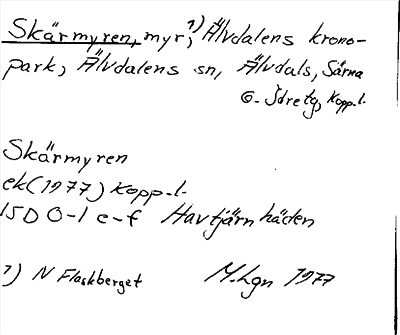 Skärmyren, myr,¹) Älvdalens krono-
park, Älvdalens sn, Älvdals, Särna
o. Idre tg, Kopp. l.
Skärmyren
ek (1977) Kopp. l.
15D 0-1 e-f Havtjärnhäden
1) N Flaskberget M.Lgn 1977